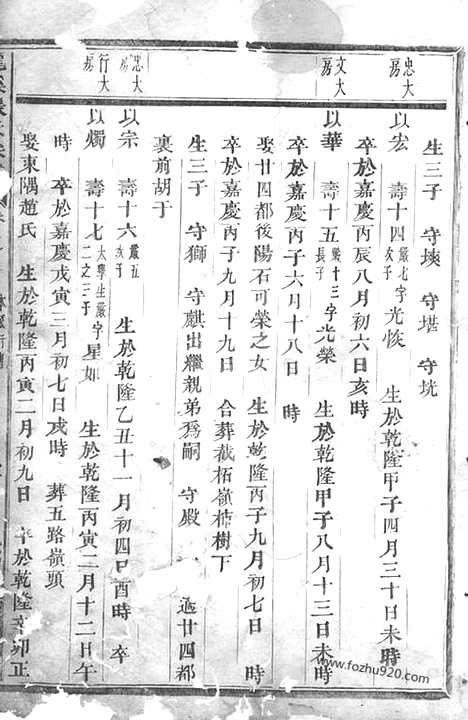 生三子 守㙷 守堪 守垙
忠大房 以宏 壽十四 嚴七次子 字光恢 生於乾隆甲子四月三十日未時
卒於嘉慶丙辰八月初六日亥時
文大房 以華 壽十五 嚴十三長子 字光榮 生於乾隆甲子八月十三日未時
卒於嘉慶丙子六月十八日 時
娶廿四都後陽石可榮之女 生於乾隆丙子九月初七日 時
卒於嘉慶丙子九月十九日 合葬截柘嶺柿樹下
生三子 守獅 守麒出繼親弟為嗣 守殿 適廿四都
裏前胡于
忠大房 以宗 壽十六 嚴五次子 生於乾隆乙丑十一月初四日酉時 卒
行大房 以燭 壽十七 太學生嚴二之三子 字星如 生於乾隆丙寅二月十二日午
時 卒於嘉慶戊寅三月初七日戌時 葬五路嶺頭
娶東隅趙氏 生於乾隆丙寅二月初九日 卒於乾隆辛卯正
www.fozhu920.com